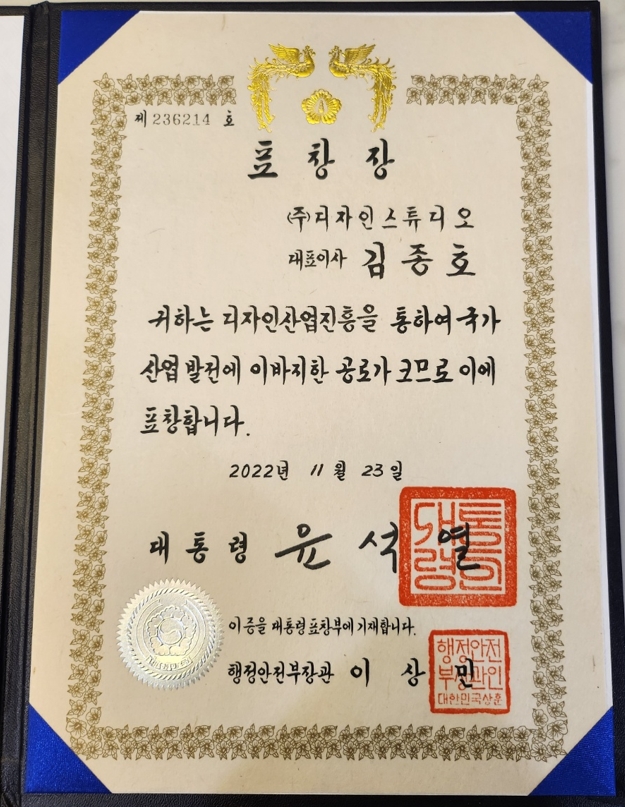 제 236214 호
표 창 장
(주)디자인스튜디오
대표이사 김종호
귀하는 디자인산업진흥을 통하여 국가
산업 발전에 이바지한 공로가 크므로 이에
표창합니다.
2022년 11월 23일
대통령 윤석열
대통령의
이 증을 대통령표창부에 기재합니다.
행정안전부장관 이상민
행정안전
부장관인
대한민국상훈